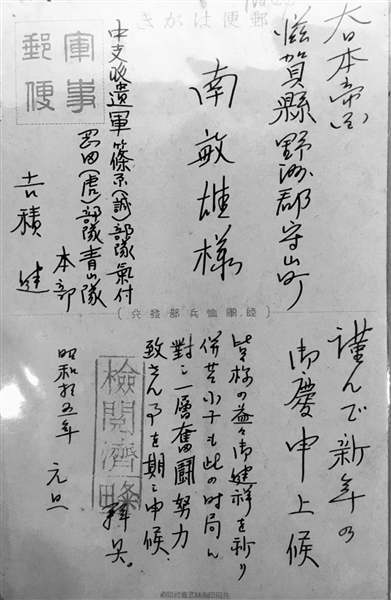 郵便はがき
軍事
郵便
大日本帝国
滋賀縣野洲郡守山町
南敏雄様
中支派遣軍篠原(誠)部隊氣付
岡田(虎)部隊青山隊
本部
吉積健
(陸軍恤兵部發行)
謹んで新年の
御慶申上候
皆々様の益々御健祥を祈り
併せ小子も此の時局に
對し一層奮闘努力
致さん事を期し申候
拜具。
昭和拾五年 元旦
檢閲濟